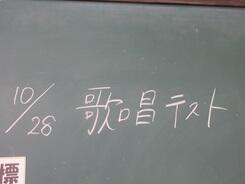 10/28 歌唱テスト
標